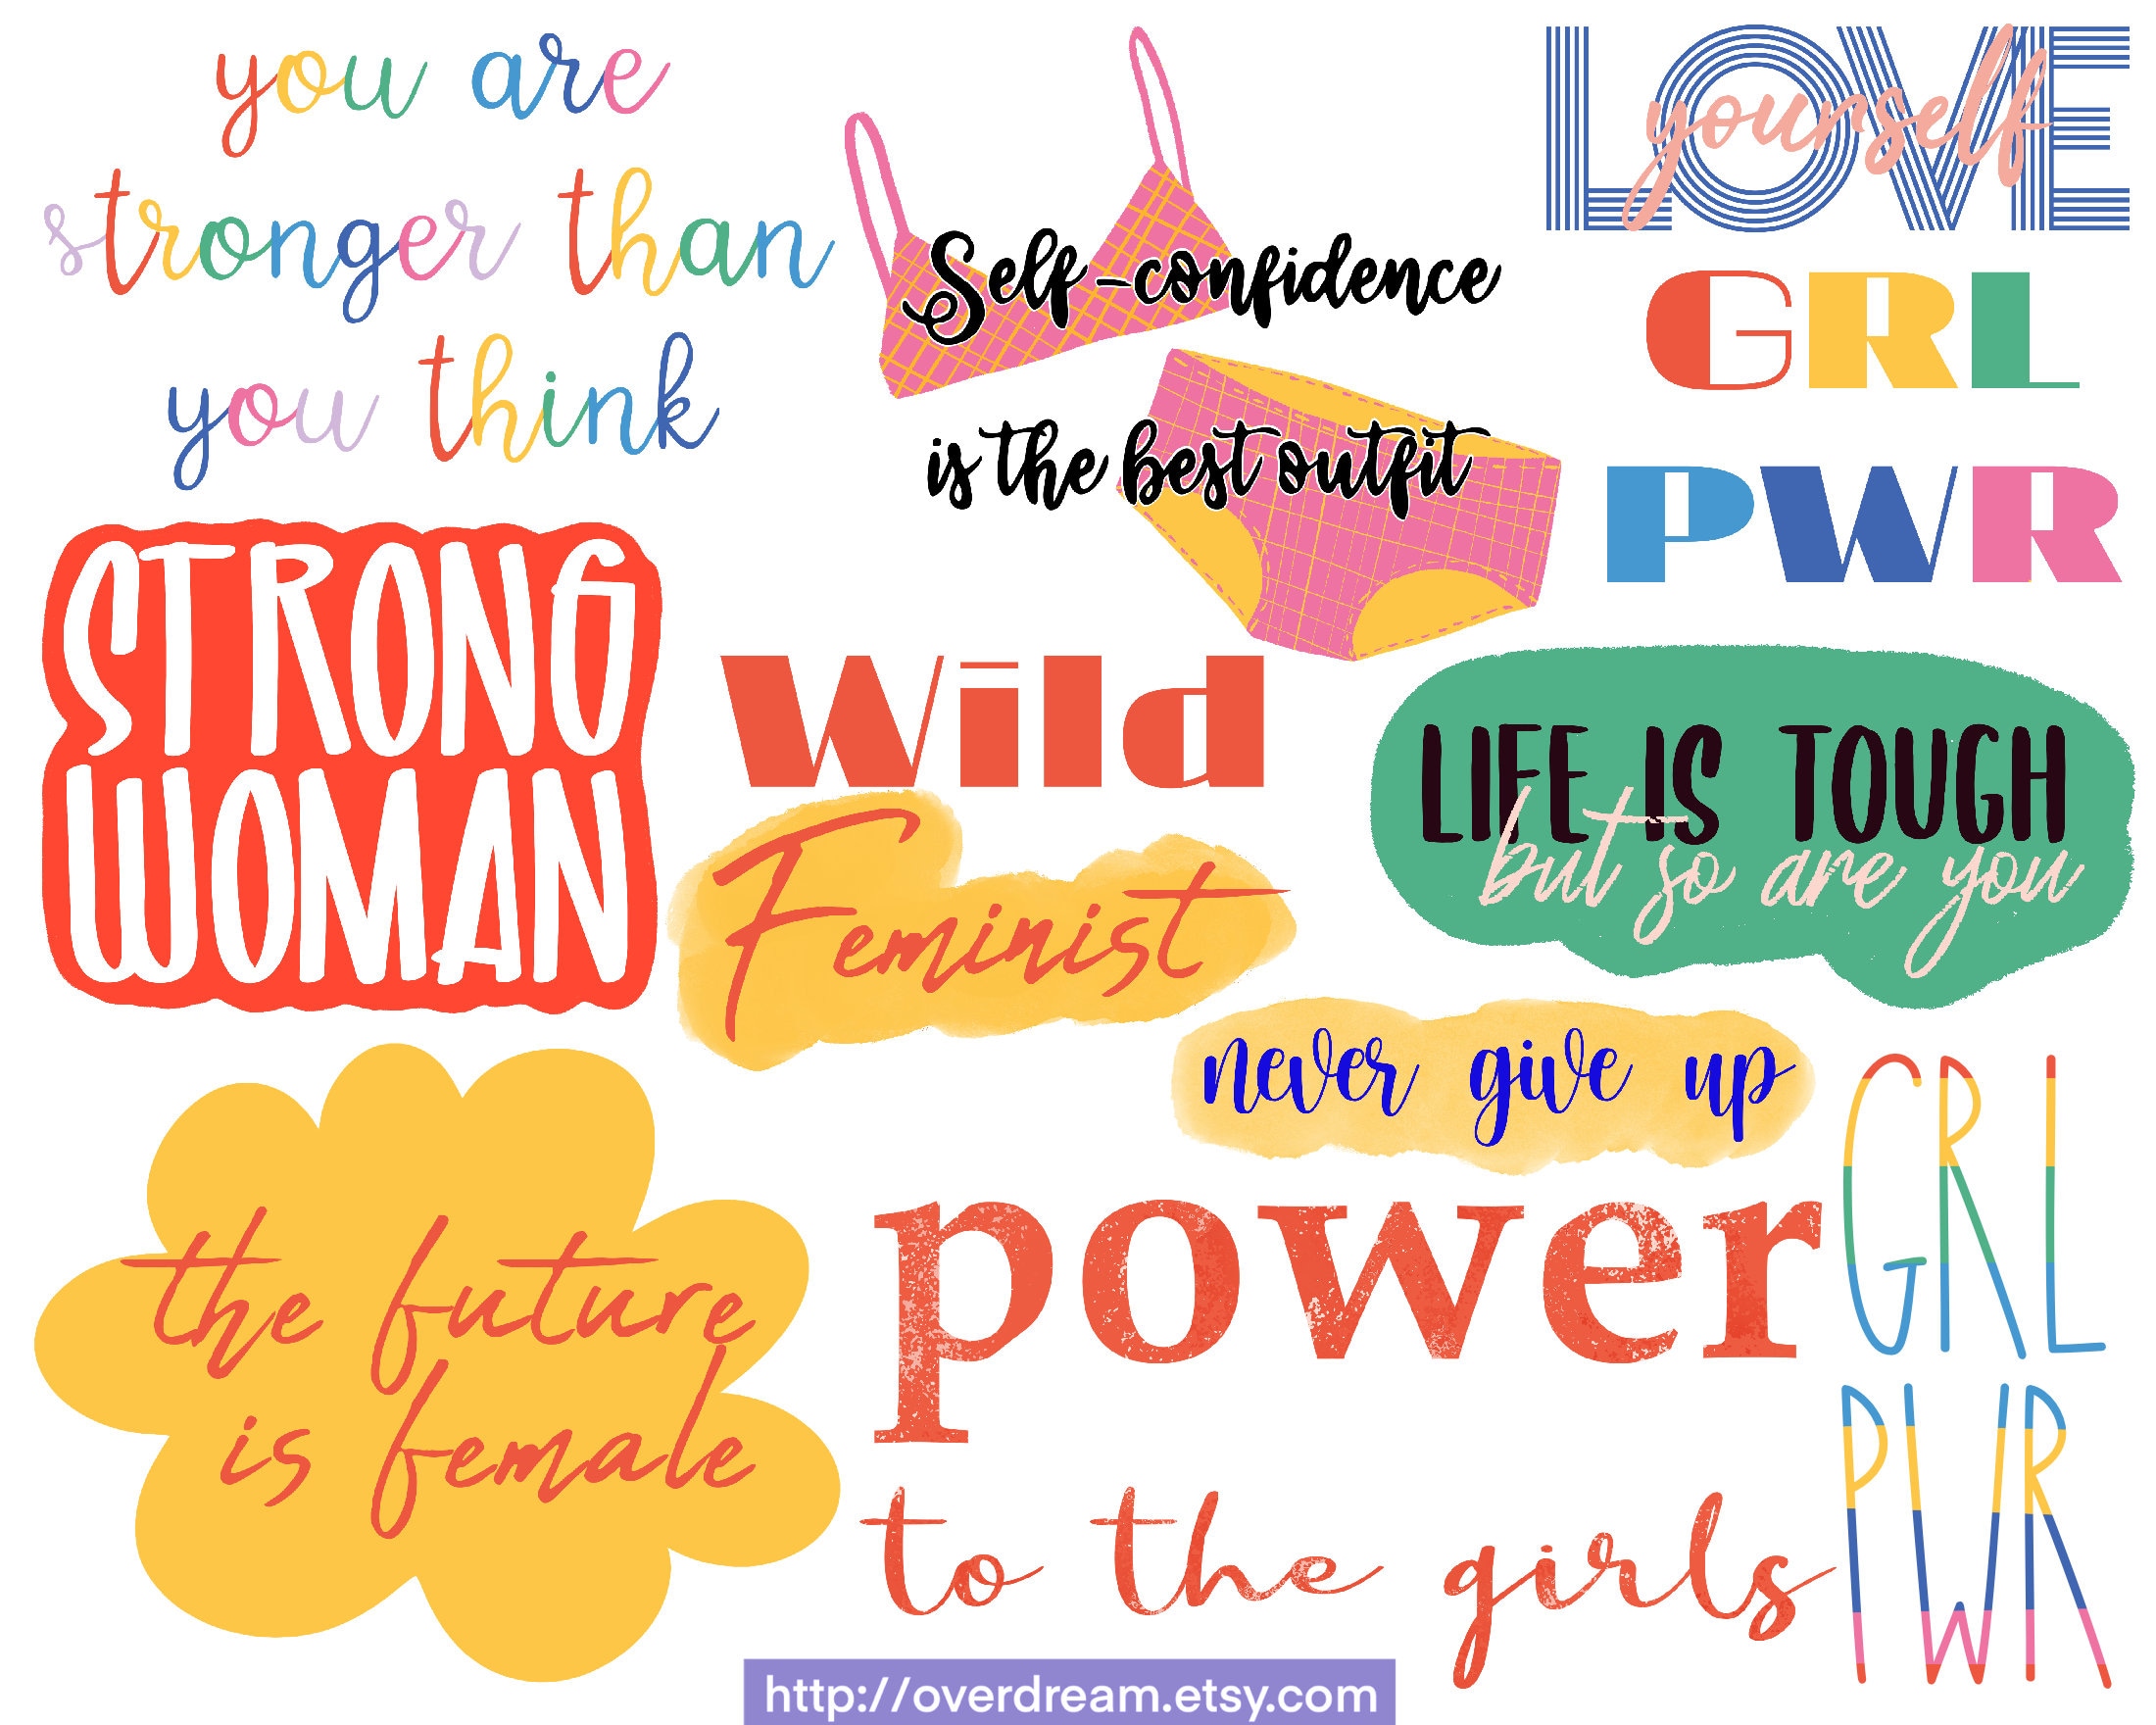 you are
stronger than
you think
Self-confidence
is the best outfit
LOVE
yourself
GRL
PWR
STRONG
WOMAN
Wild
Feminist
LIFE IS TOUGH
but so are you
never give up
the future
is female
power
to the girls
GRL
PWR
http://overdream.etsy.com